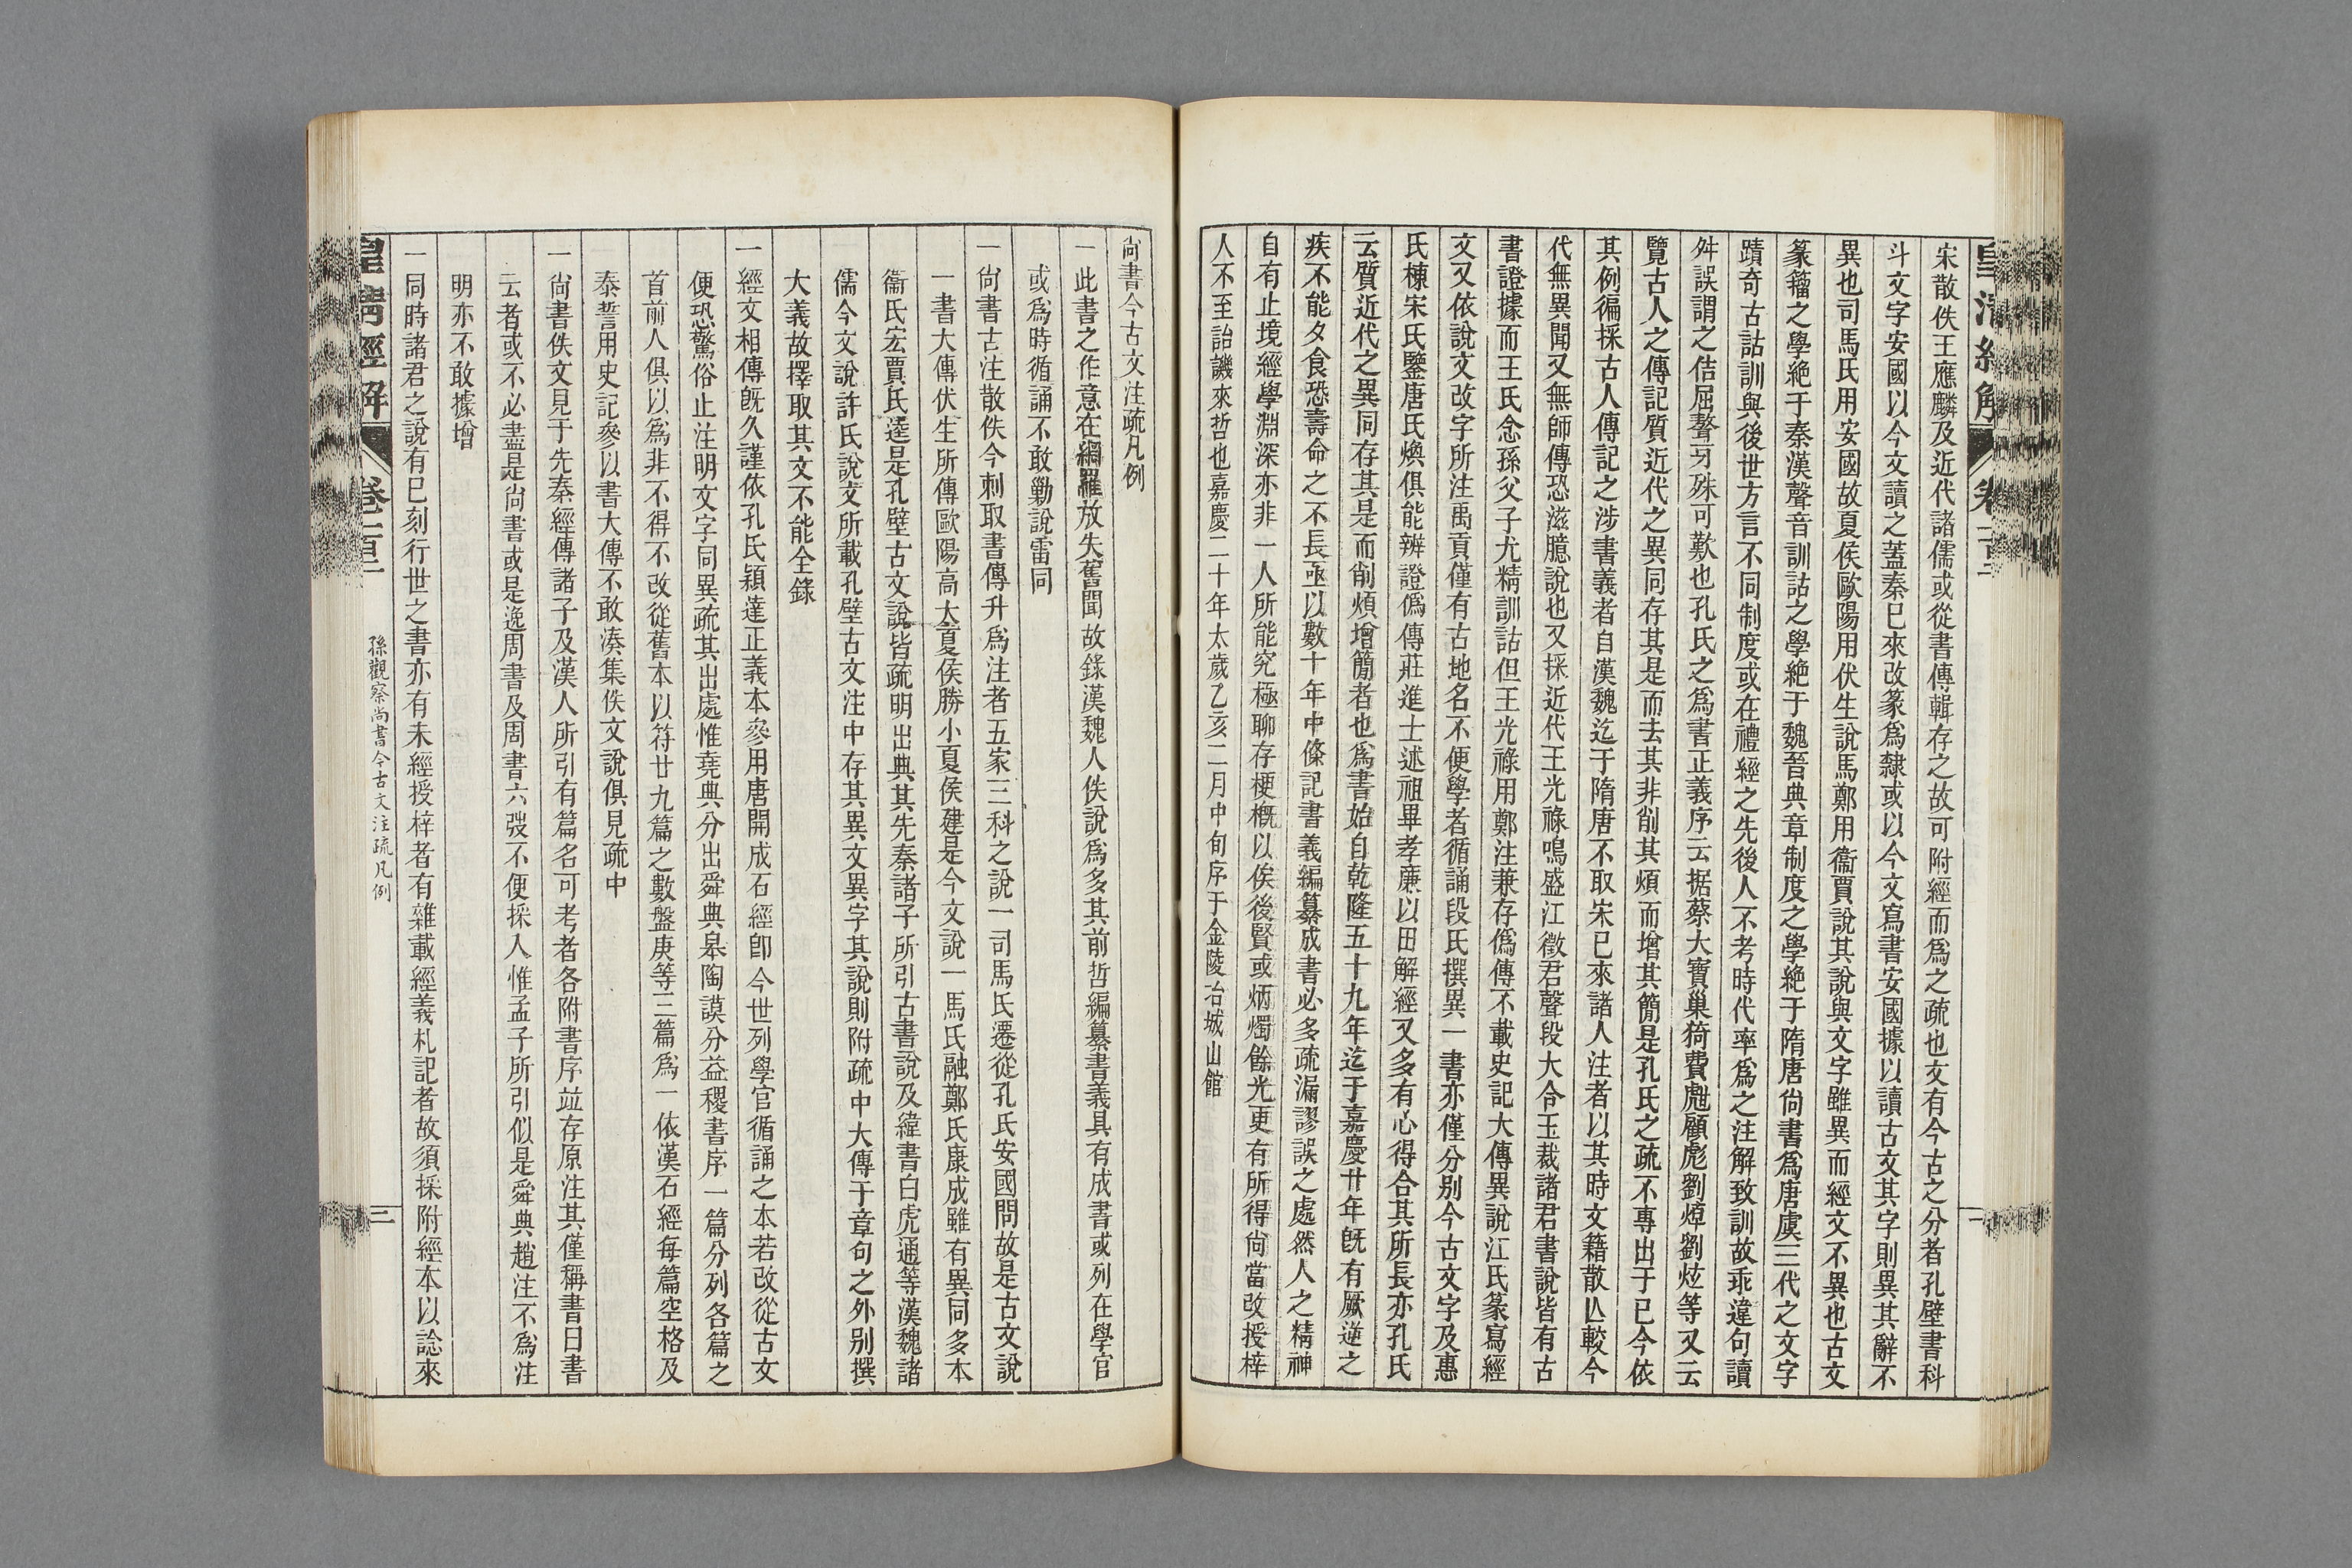 宋散佚王應麟及近代諸儒或從書傳輯存之故可附經而爲之疏也文有今古之分者孔壁書科
斗文字安國以今文讀之蓋秦巳來改篆爲隸或以今文寫書安國據以讀古文其字則異其辭不
異也司馬氏用安國故夏侯歐陽用伏生說馬鄭用衞賈說其說與文字雖異而經文不異也古文
篆籀之學絶于秦漢聲音訓詁之學絶于魏晉典章制度之學絶于隋唐尚書爲唐虞三代之文字
蹟奇古詁訓與後世方言不同制度或在禮經之先後人不考時代率爲之注解致訓故乖違句讀
舛誤謂之佶屈聱牙殊可歎也孔氏之爲書正義序云据蔡大寶巢猗費甝顧彪劉焯劉炫等又云
覽古人之傳記質近代之異同存其是而去其非削其煩而增其簡是孔氏之疏不專出于已今依
其例徧採古人傳記之涉書義者自漢魏迄于隋唐不取宋已來諸人注者以其時文籍散亾較今
代無異聞又無師傳恐滋臆說也又採近代王光祿鳴盛江徵君聲段大令玉裁諸君書說皆有古
書證據而王氏念孫父子尤精訓詁但王光祿用鄭注兼存僞傳不載史記大傳異說江氏篆寫經
文又依說文改字所注禹貢僅有古地名不便學者循誦段氏撰異一書亦僅分别今古文字及惠
氏棟宋氏鑒唐氏煥俱能辨證僞傳莊進士述祖畢孝廉以田解經又多有心得合其所長亦孔氏
云質近代之異同存其是而削煩增簡者也爲書始自乾隆五十九年迄于嘉慶廿年旣有厥逆之
疾不能夕食恐壽命之不長亟以數十年中條記書義編纂成書必多疏漏謬誤之處然人之精神
自有止境經學淵深亦非一人所能究極聊存梗槪以俟後賢或炳燭餘光更有所得尚當改授梓
人不至詒譏來哲也嘉慶二十年太歲乙亥二月中旬序于金陵冶城山館
尚書今古文注疏凡例
一此書之作意在網羅放失舊聞故錄漢魏人佚說爲多其前哲編纂書義具有成書或列在學官
或爲時循誦不敢勦說雷同
一尚書古注散佚今刺取書傳升爲注者五家三科之說一司馬氏遷從孔氏安國問故是古文說
一書大傳伏生所傳歐陽高大夏侯勝小夏侯建是今文說一馬氏融鄭氏康成雖有異同多本
衞氏宏賈氏逵是孔壁古文說皆疏明出典其先秦諸子所引古書說及緯書白虎通等漢魏諸
儒今文說許氏說文所載孔壁古文注中存其異文異字其說則附疏中大傳于章句之外别撰
大義故擇取其文不能全錄
一經文相傳旣久謹依孔氏穎達正義本參用唐開成石經卽今世列學官循誦之本若改從古文
便恐驚俗止注明文字同異疏其出處惟堯典分出舜典皋陶謨分益稷書序一篇分列各篇之
首前人俱以爲非不得不改從舊本以符廿九篇之數盤庚等三篇爲一依漢石經每篇空格及
泰誓用史記參以書大傳不敢湊集佚文說俱見疏中
一尚書佚文見于先秦經傳諸子及漢人所引有篇名可考者各附書序竝存原注其僅稱書曰書
云者或不必盡是尚書或是逸周書及周書六弢不便採入惟孟子所引似是舜典趙注不爲注
明亦不敢據增
一同時諸君之說有巳刻行世之書亦有未經授梓者有雜載經義札記者故須採附經本以諗來
皇淸經解 卷七百三十五
孫觀察尚書今古文注疏凡例
二